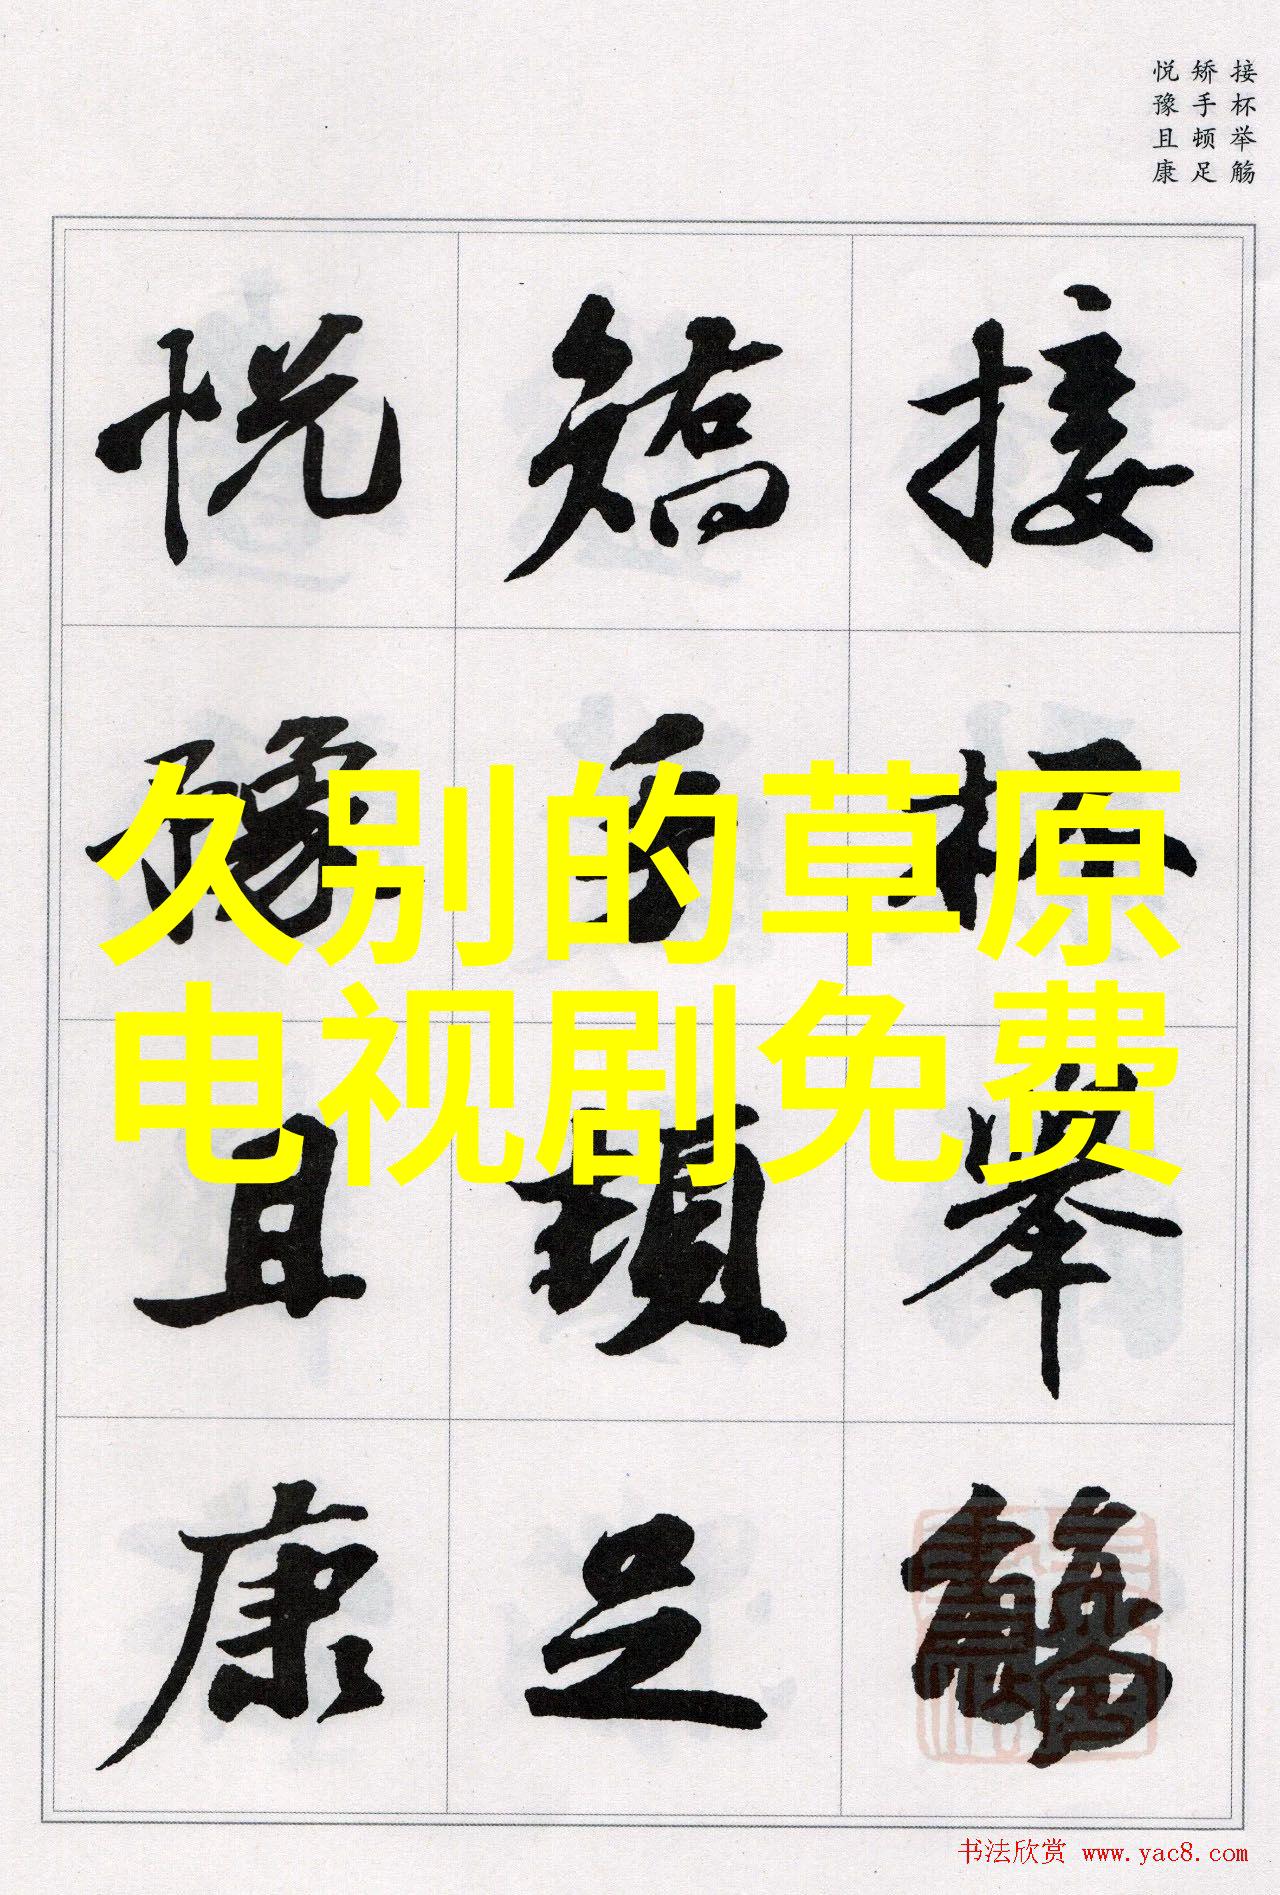 接杯举觞
矫手顿足
悦豫且康
接杯举觞
矫手顿足
悦豫且康
久别的草原
电视剧免费
书法欣赏 www.yac8.com